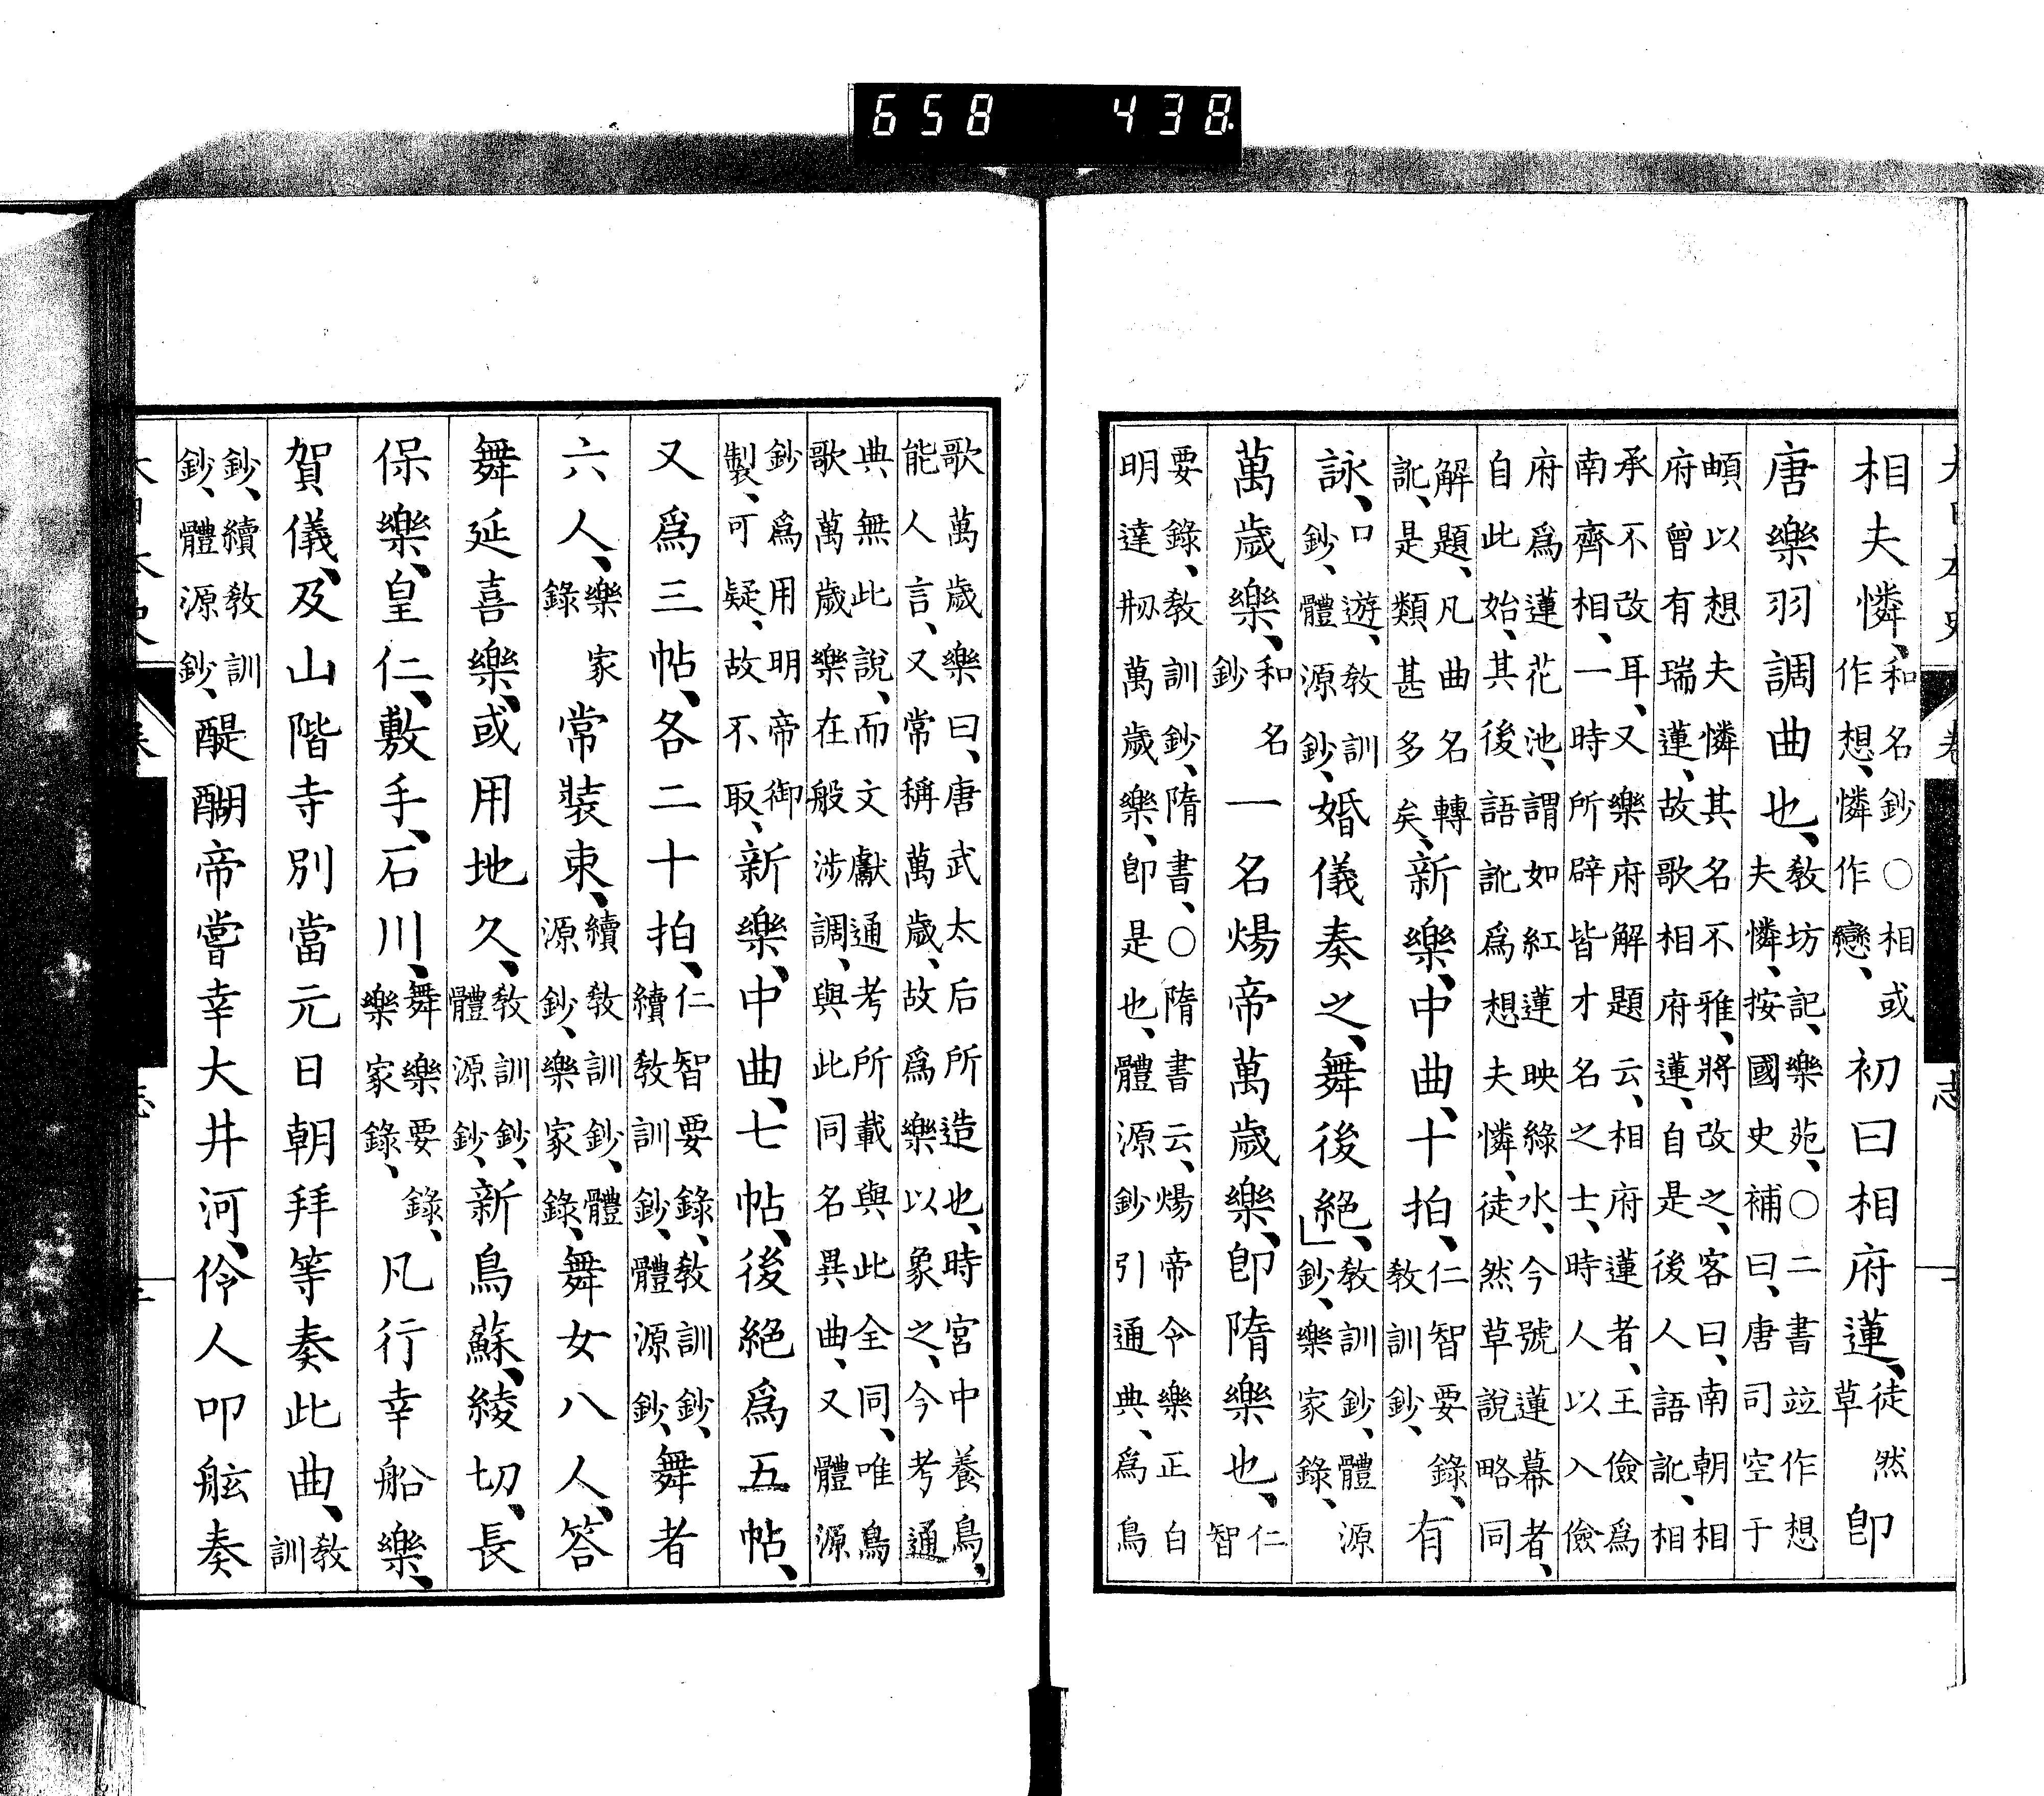 658 438
大日本史 卷 志
相夫憐、和名鈔○相或
作想、憐作戀、初曰相府蓮、徒然
草卽
唐樂羽調曲也、教坊記、樂苑、○二書竝作想
夫憐、按國史補曰、唐司空于
頔以想夫憐其名不雅、將改之、客曰、南朝相
府曾有瑞蓮、故歌相府蓮、自是後人語訛、相
承不改耳、又樂府解題云、相府蓮者、王儉爲
南齊相、一時所辟皆才名之士、時人以入儉
府爲蓮花池、謂如紅蓮映綠水、今號蓮幕者、
自此始、其後語訛爲想夫憐、徒然草說略同
解題、凡曲名轉
訛、是類甚多矣、新樂、中曲、十拍、仁智要錄、
教訓鈔、有
詠、口遊、教訓
鈔、體源鈔、婚儀奏之、舞後絕、教訓鈔、體源
鈔、樂家錄、
萬歲樂、和名
鈔一名煬帝萬歲樂、卽隋樂也、仁
智
要錄、教訓鈔、隋書、○隋書云、煬帝令樂正白
明達刱萬歲樂、卽是也、體源鈔引通典、爲鳥
歌萬歲樂曰、唐武太后所造也、時宮中養鳥、
能人言、又常稱萬歲、故爲樂以象之、今考通
典、無此說、而文獻通考所載與此全同、唯鳥
歌萬歲樂在般涉調、與此同名異曲、又體源
鈔爲用明帝御
製、可疑、故不取、新樂、中曲、七帖、後絕爲五帖、
又爲三帖、各二十拍、仁智要錄、教訓鈔、
續教訓鈔、體源鈔、舞者
六人、樂家
錄常裝束、續教訓鈔、體
源鈔、樂家錄、舞女八人、答
舞延喜樂、或用地久、教訓鈔、
體源鈔、新鳥蘇、綾切、長
保樂、皇仁、敷手、石川、舞樂要錄、
樂家錄、凡行幸船樂、
賀儀、及山階寺別當元日朝拜等奏此曲、教
訓
鈔、續教訓
鈔、體源鈔、醍醐帝嘗幸大井河、伶人叩舷奏